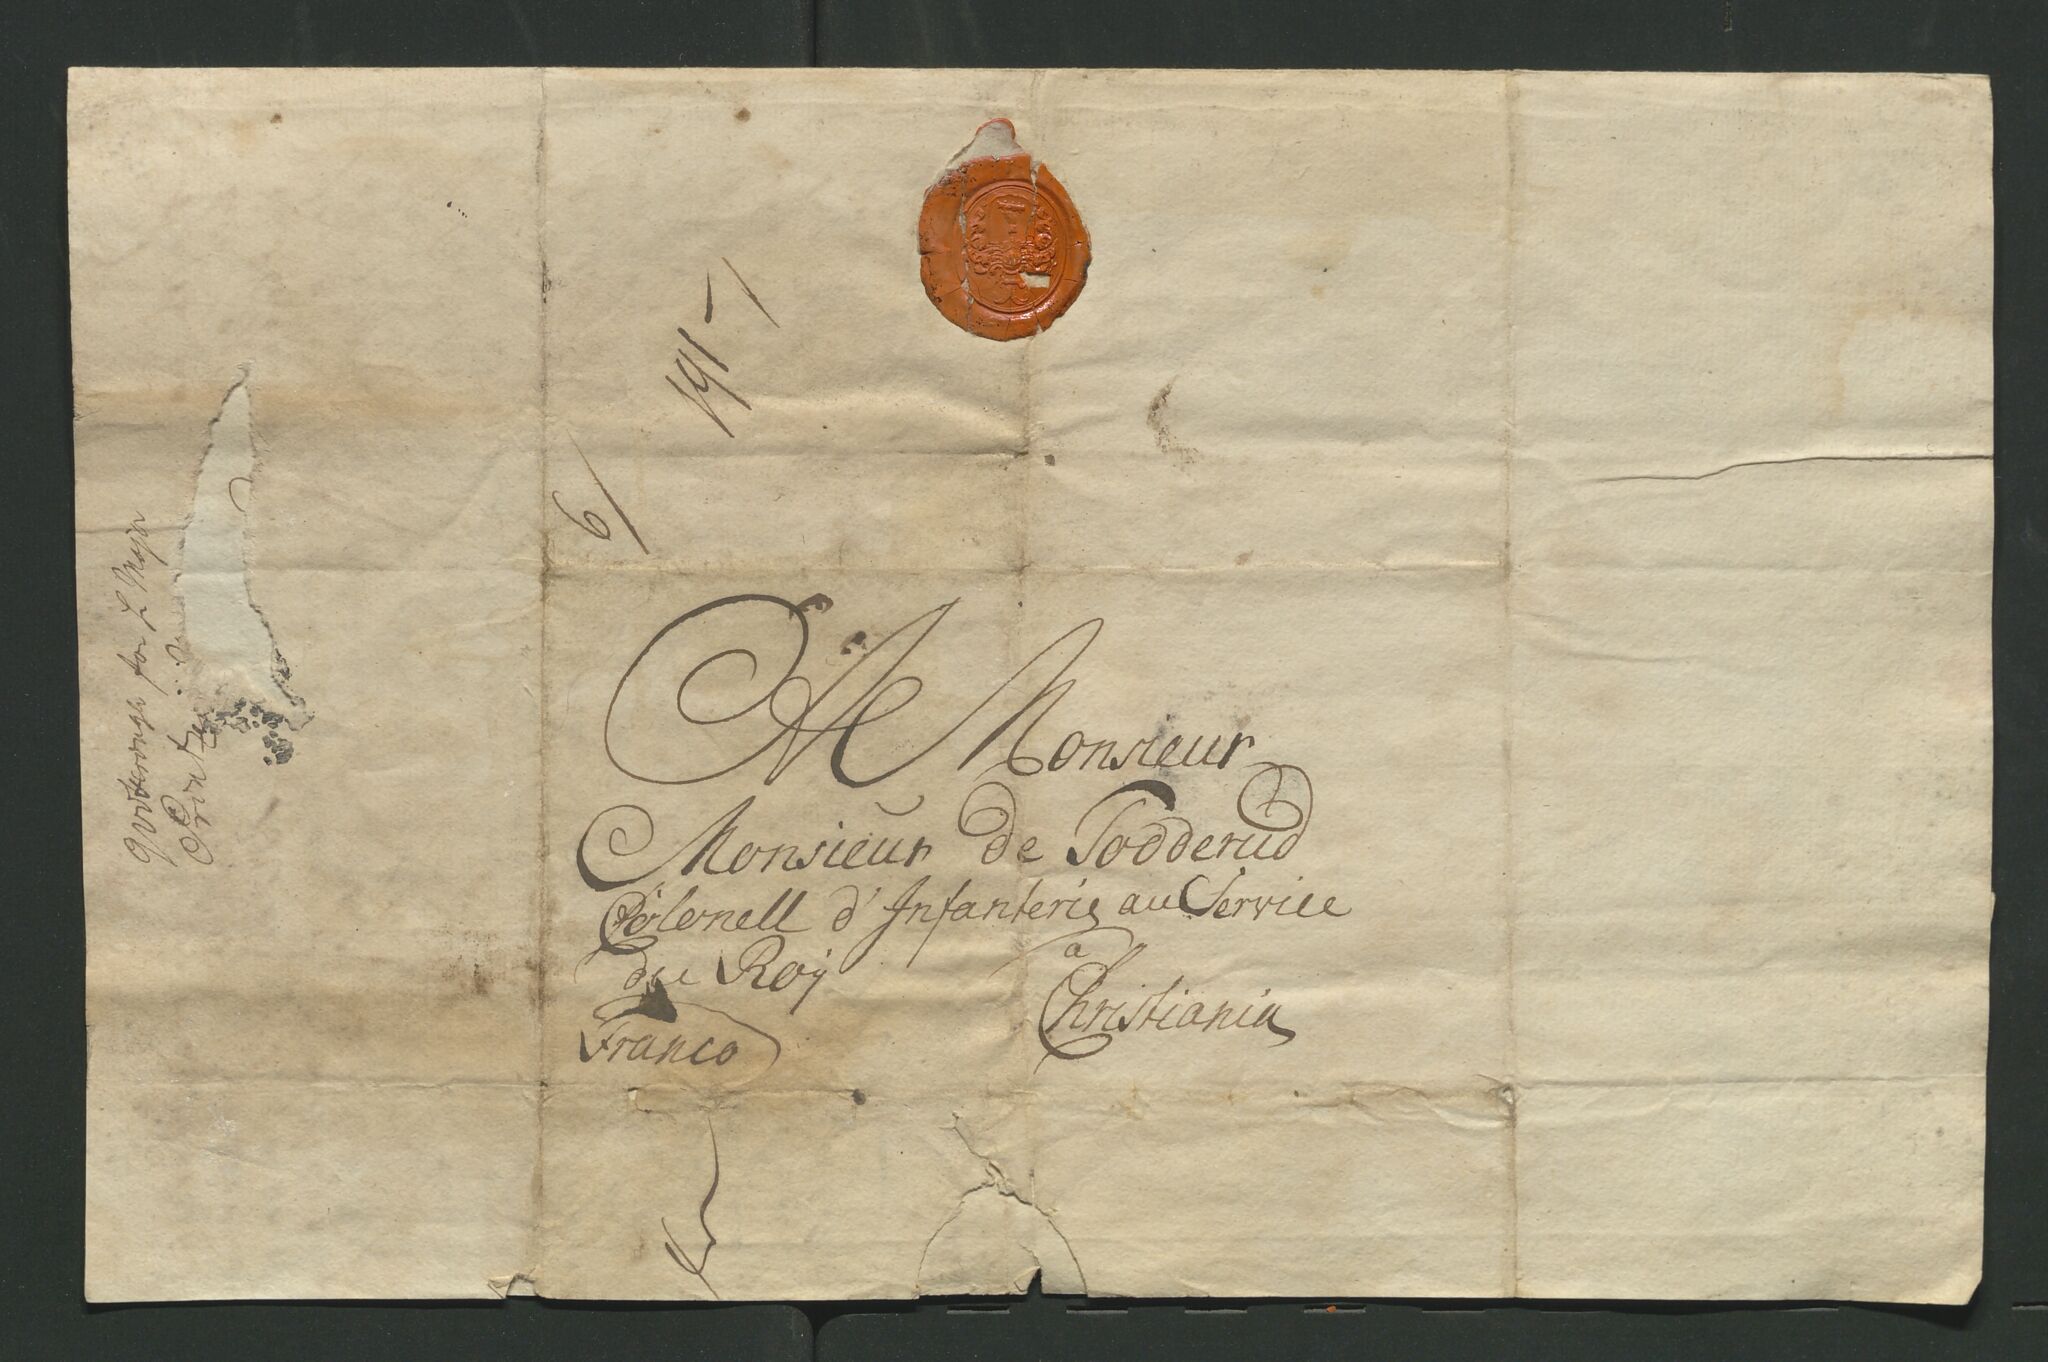 191-/
6/
A Monsieur
Monsieur de Todderud
Colonell d'Infanterie au Service
du Roÿ
a
Christiania
Franco
for L Major